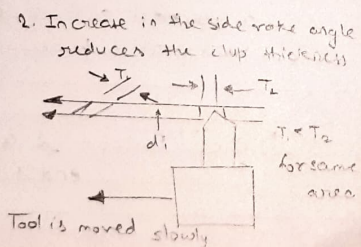 2. Increase in the side rake angle
reduces the chip thickness
T₁
T₂
di
T₁ < T₂
for same
area
Tool is moved slowly